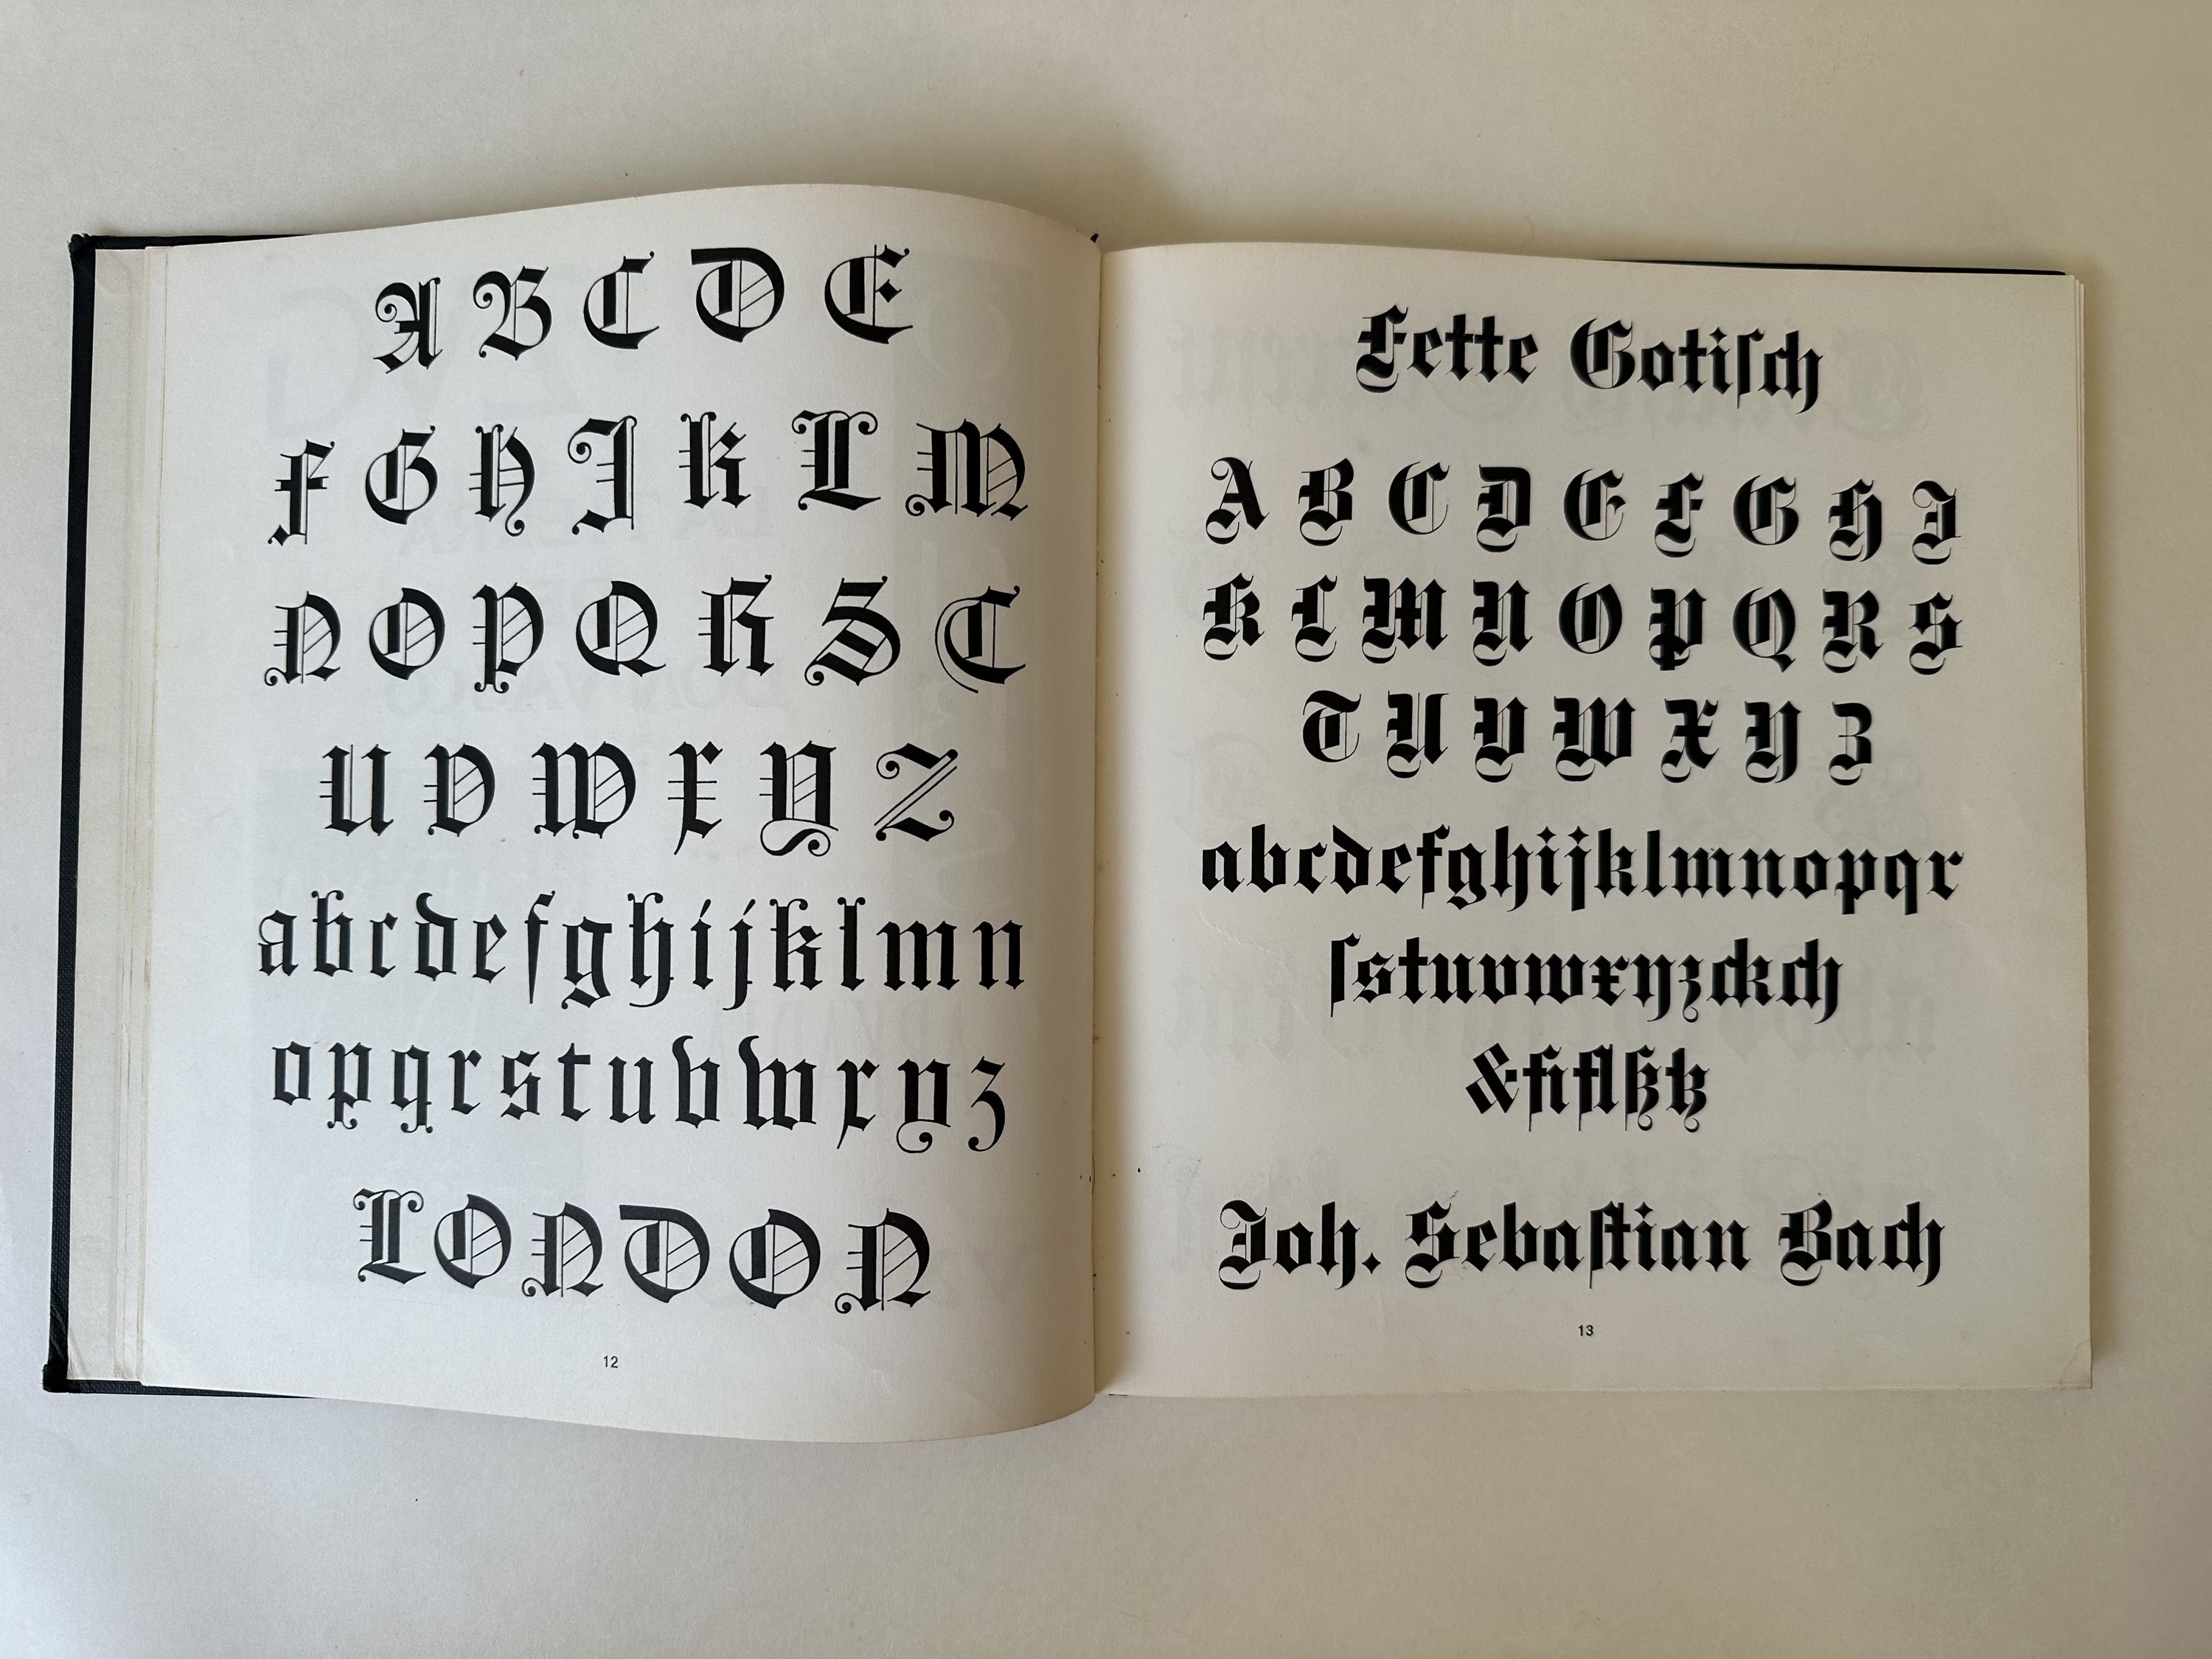 A B C D E
F G H J K L M
N O P Q R S T
U V W X Y Z
abcdefghijklmn
opqrstuvwxyz
LONDON
12
Fette Gotiſch
A B C D E F G H I
K L M N O P Q R S
T U V W X Y Z
abcdefghijklmnopqr
ſstuvwxyzckch
&fiflßtz
Joh. Sebaſtian Bach
13